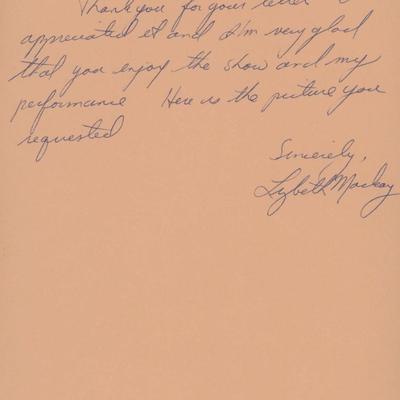 Thank you for your letter I
appreciated it and I'm very glad
that you enjoy the show and my
performance Here is the picture you
requested
Sincerely,
Lizbeth Mackay